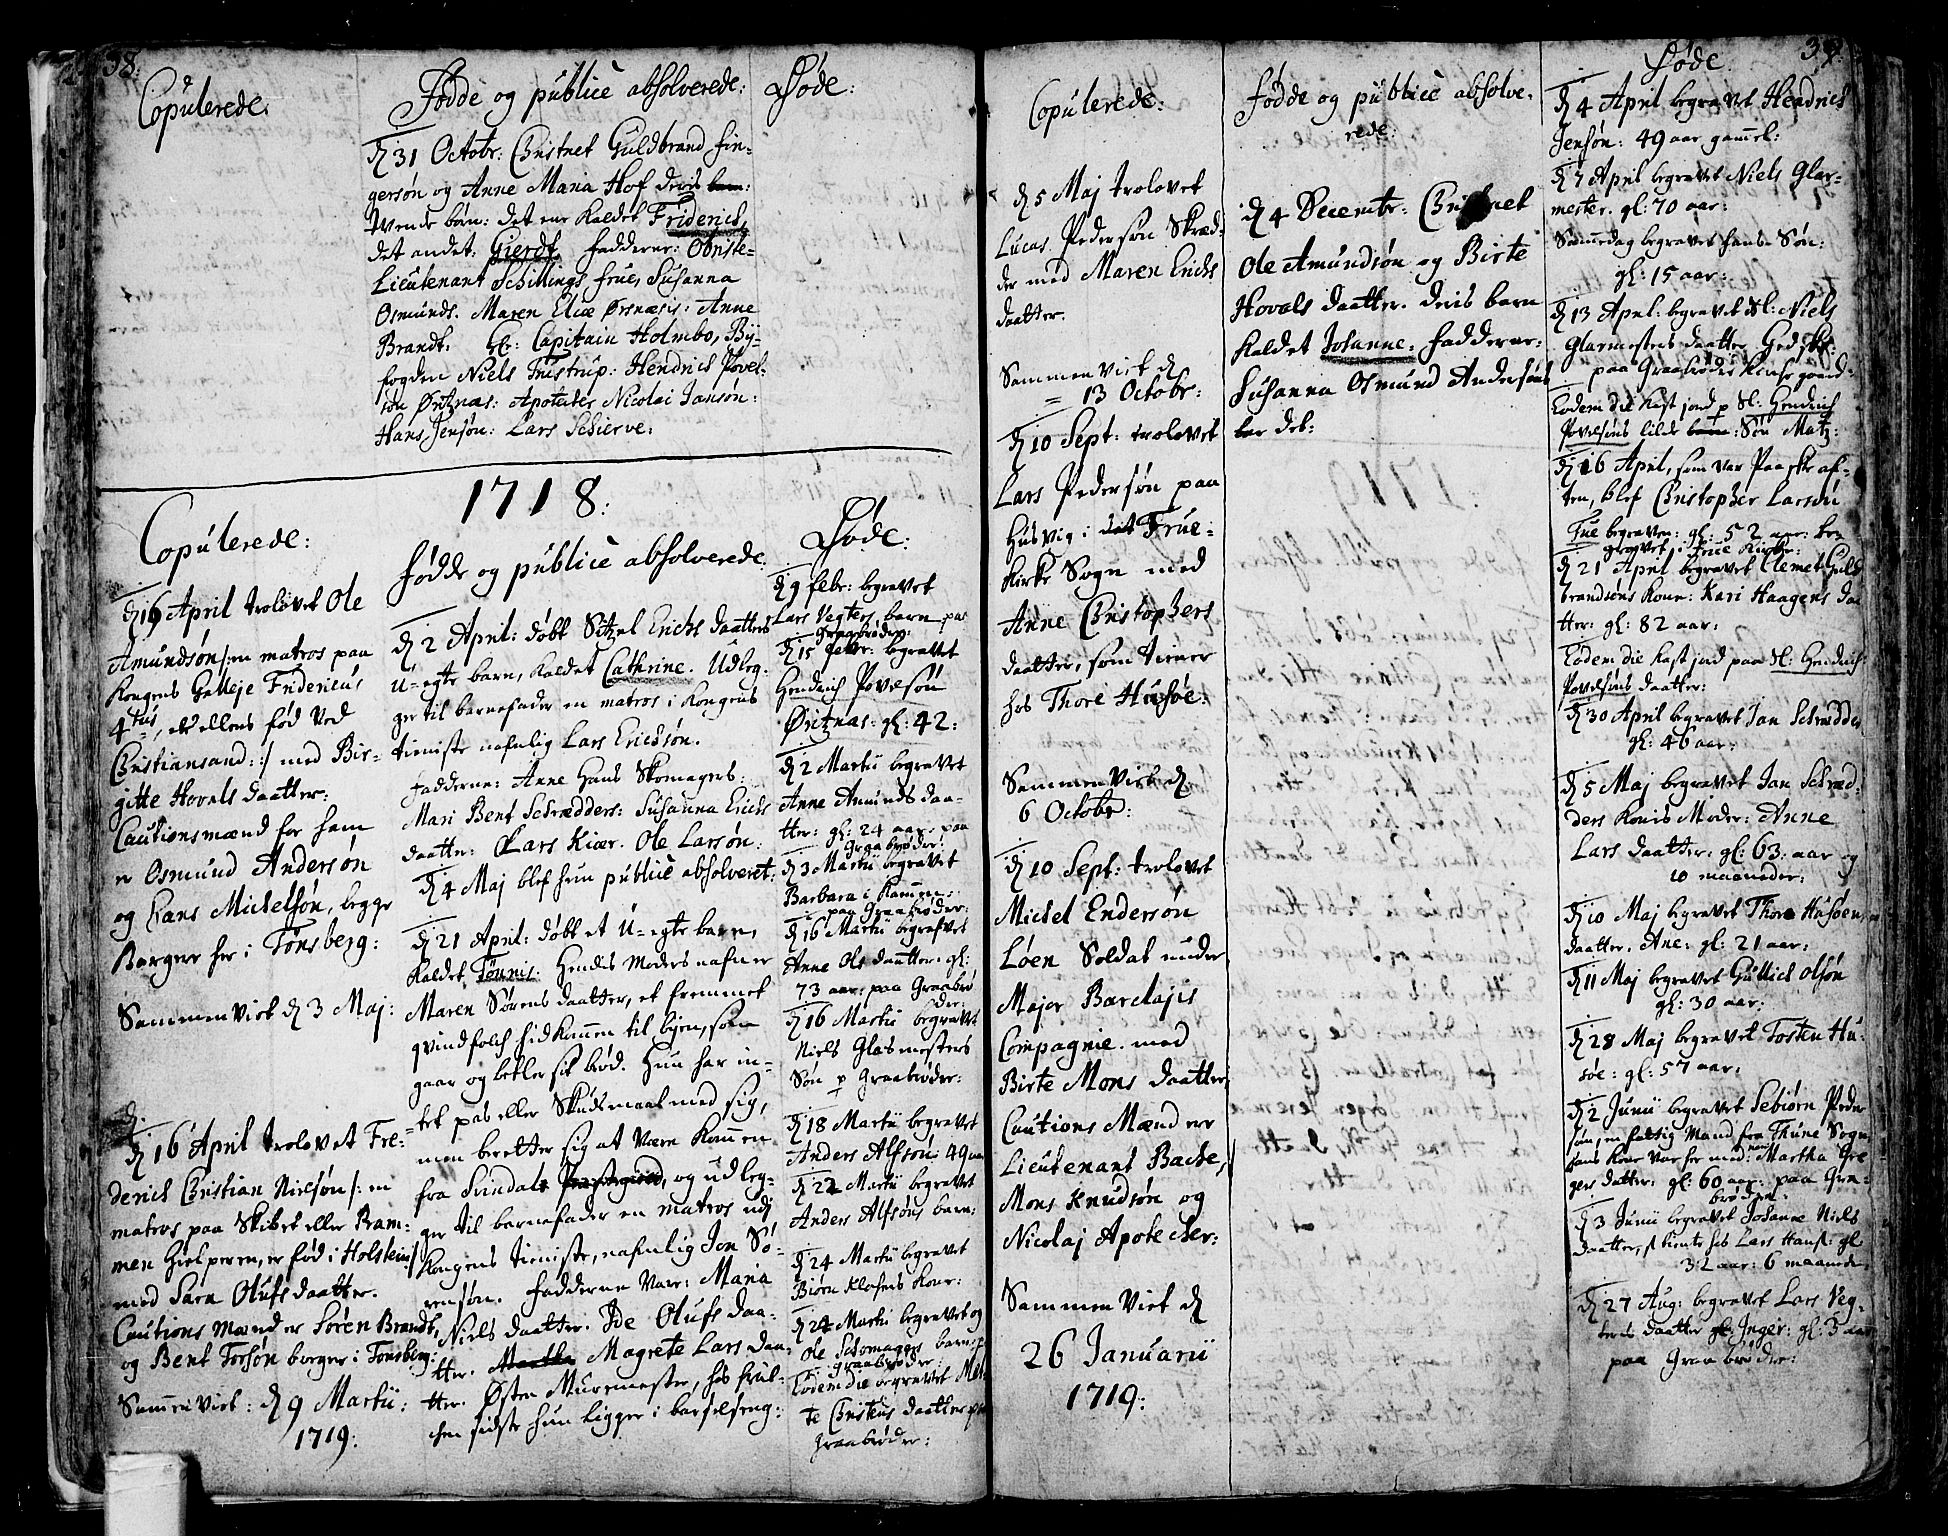 38.
Copulerede:
Fødde og publicè absolverede:
Døde:
D 31 Octobr: Christnet Guldbrand Fin-
gersøn og Anne Maria Hof deris barn:
tvende børn: det ene kaldet Friderich,
det andet: Gierdt. Fadderne: Obriste-
Lieutenant Schillings frue, Susanna
Osmunds. Maren Elice Ørsnæsis. Anne
Brandt. Hr: Capitain Holmbo, By-
fogden Niels Trustrup: Hendrich Povel-
søn Øritznas: Apoteker Nicolai Jansøn:
Hans Jensøn: Lars Schierve:
1718:
Copulerede:
D 16 April trolovet Ole
Amundsøn /: en matros paa
Kongens Galleje Fridericus
4tus, ellers fød ved
Christiansand: :/ med Bir-
gitte Hovels daatter:
Cautionsmænd for ham
er Osmund Andersøn
og Hans Michelsøn, begge
Borgere her i Tønsberg:
Sammenviet D 3 Maj:
D 16 April trolovet Fre-
derich Christian Nielsøn /: en
matros paa Skibet eller Ram-
men Hielperen, er fød i Holsteen :/
med Sara Olufs daatter.
Cautions mænd er Søren Brandt,
og Bent Torsøn borger i Tønsberg:
Sammenviet: D 9 Martii:
1719:
Fødde og publicè absolverede.
D 2 April: døbt Sitzel Erichs daatters
U-egte barn, kaldet Cathrine. Udleg-
ger til barnefader en matros i Kongens
tieniste nafnlig Lars Erichsøn.
Fadderne: Anne Hans Skomagers:
Mari Bent Schrædders: Susanna Erichs
daatter: Lars Kiær. Ole Larsøn.
D 4 Maj blef hun publicè absolveret:
D 21 April: døbt et U-egte barn,
kaldet Tønnis. Hendis moders nafn er
Maren Sørens daatter, et fremmet
qvindfolch hidkommen til byen, som
gaar og betler sit brød. Hun har in-
tet pas eller Skudsmaal med sig,
men beretter sig at være kommen
fra Svindal, og udleg-
ger til barnefader en matros udj
Kongens tieniste, nafnlig Jon Sø-
rensøn. Fadderne vare: Maria
Niels daatter. Ide Olufs daa-
tter. Martha Magrete Lars daa-
tter. Østen Muremester, hos hvil-
chen sidste hun ligger i barselseng:
Døde:
D 9 Febr: begravet
Lars Vegters barn paa
Graabrøder:
D 15 Febr: begravet
Hendrich Povelsøn
Øritznas: gl: 42:
D 2 Martii begravet
Anne Amunds daa-
tter: gl: 24 aar: paa
Graabrøder:
D 3 Martii begravet
Barbara i Kommen:
paa Graabrøder:
D 16 Martii begrafvet
Anne Ols daatter: gl:
73 aar: paa Graabrø
der:
D 16 Martii begravet
Niels Glasmesters
Søn p Graabrøder:
D 18 Martii begravet
Anders Alfsøn 49 aar
D 22 Martii begravet
Anders Alfsøns barn:
D 24 Martii begravet
Biørn Klofnis Kone:
D 24 Martii begravet og
Ole Schomagers barn: p
Graabrøder:
Eodem die begravet Met-
te Christens daatter paa
Graabrøder:
39.
Copulerede:
D 5 Maj trolovet
Lucas Pedersøn Skræd-
der med Maren Erichs
daatter.
Sammenviet D
13 Octobr:
D 10 Sept: trolovet
Lars Pedersøn paa
Husvig i det Frue-
Kirke Sogn med
Anne Christophers
daatter, som tiener
hos Thore Husøe:
Sammenviet D.
6 Octobr:
D 10 Sept: trolovet
Michel Endersøn
Løen Soldat under
Major Barclajis
Compagnie. med
Birte Mons daatter,
Cautions Mænd ere
Lieutenant Bache,
Mons Knudsøn og
Nicolaj Apotecher:
Sammenviet D
26 Januarii
1719:
Fødde og publicè absolve-
rede:
D 4 Decembr: Christnet
Ole Amundsøn og Birte
Hovels daatter. deris barn
kaldet Johanne. Fadderne:
Susanna Osmund Andersøns
bar det:
Døde
D 4 April begravet Hendrich
Jensøn: 49 aar gammel:
D 7 April begravet Niels Glar-
mester. gl: 70 aar:
Sammedag begravet hans Søn:
gl: 15 aar:
D 13 April: begravet Sl: Niels
Glarmesters daatter Gedske:
paa Graabrødre Kirkegaard:
Eodem die kast jord p Sl: Hendrich
Povelsøns lille barn: Søn Matz:
D 16 April, som var Paaske af-
ten, blef Christopher Larsøn
Tue begraven: gl: 52 aar: be-
gravet i Frue Kirke:
D 21 April begravet Clemet Guld
brandsøns Kone: Kari Haagens da
tter: gl: 82 aar:
Eodem die kast jord paa Sl: Hendrich
Povelsøns daatter:
D 30 April begravet Jan Schrædder
gl: 46 aar:
D 5 Maj begravet Jan Schræd-
ders Konis Moder: Anne
Lars daatter, gl: 63: aar og
10 maaneder:
D 10 Maj begravet Thore Husøens
daatter. Ane: gl: 21 aar:
D 11 Maj begravet Gullich Olsøn
gl: 30 aar:
D 28 Maj begravet Tosten Hu-
søe: gl: 57 aar:
D 2 Junii begravet Sebiørn Peder
søn, en fattig Mand fra Thune Sogn
hans Kone var her med: Martha Gre
gers datter: gl: 60 aar: paa Gra-
brøder:
D 3 Junii begravet Johanne Niels
daatter, tiente hos Lars Hansøn: gl:
32 aar: 6 maaneder
D 27 Aug: begravet Lars Veg-
ters daatter gl: Inger: gl: 3 aar
paa Graabrøder: